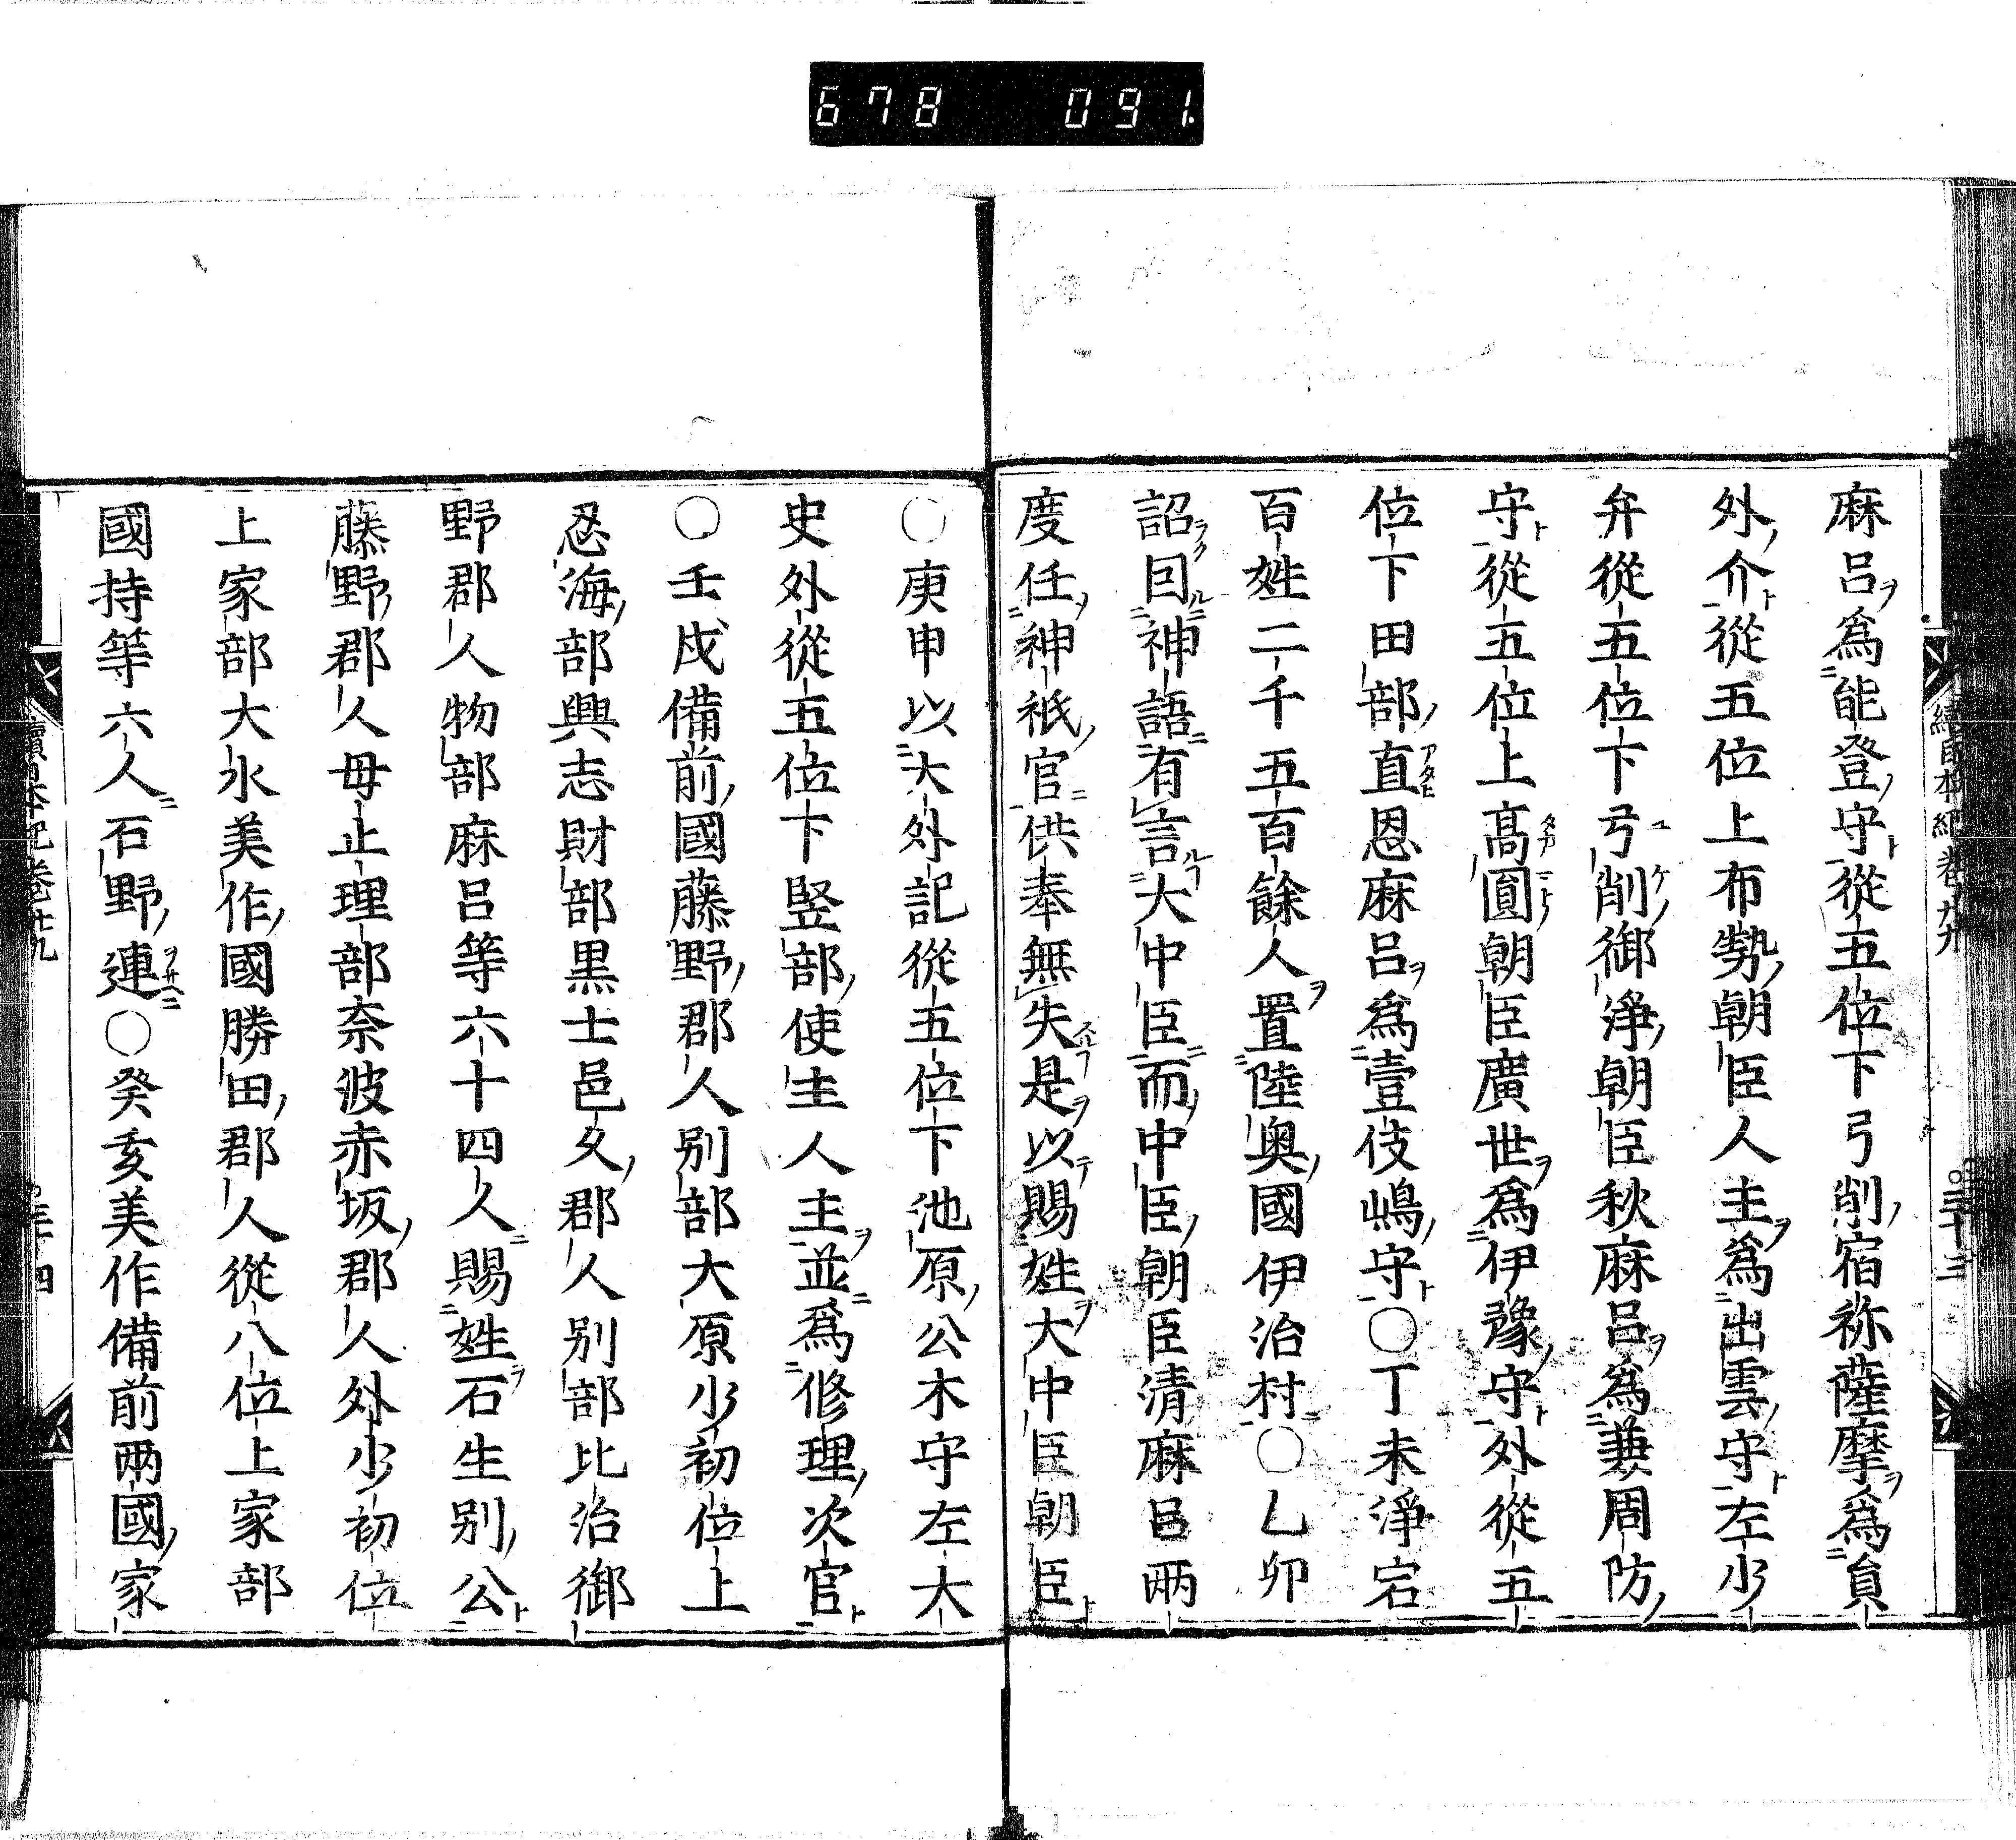 678 091
麻呂爲能登守從五位下弓削宿祢薩摩爲員
外介從五位上布勢朝臣人主爲出雲守左少
弁從五位下弓削御淨朝臣秋麻呂爲兼周防
守從五位上髙圓朝臣廣世爲伊豫守外從五
位下田部直恩麻呂爲壹伎嶋守○丁未淨宕
百姓二千五百餘人置陸奥國伊治村○乙卯
詔曰神語有言大中臣而中臣朝臣清麻呂兩
度任神祇官供奉無失是以賜姓大中臣朝臣
○庚申以大外記從五位下池原公木守左大
史外從五位下竪部使主人主並爲修理次官
○壬戌備前國藤野郡人別部大原少初位上
忍海部興志財部黒士邑久郡人別部比治御
野郡人物部麻呂等六十四人賜姓石生別公
藤野郡人母止理部奈波赤坂郡人外少初位
上家部大水美作國勝田郡人從八位上家部
國持等六人石野連○癸亥美作備前兩國家
續日本紀卷廿九
三十四